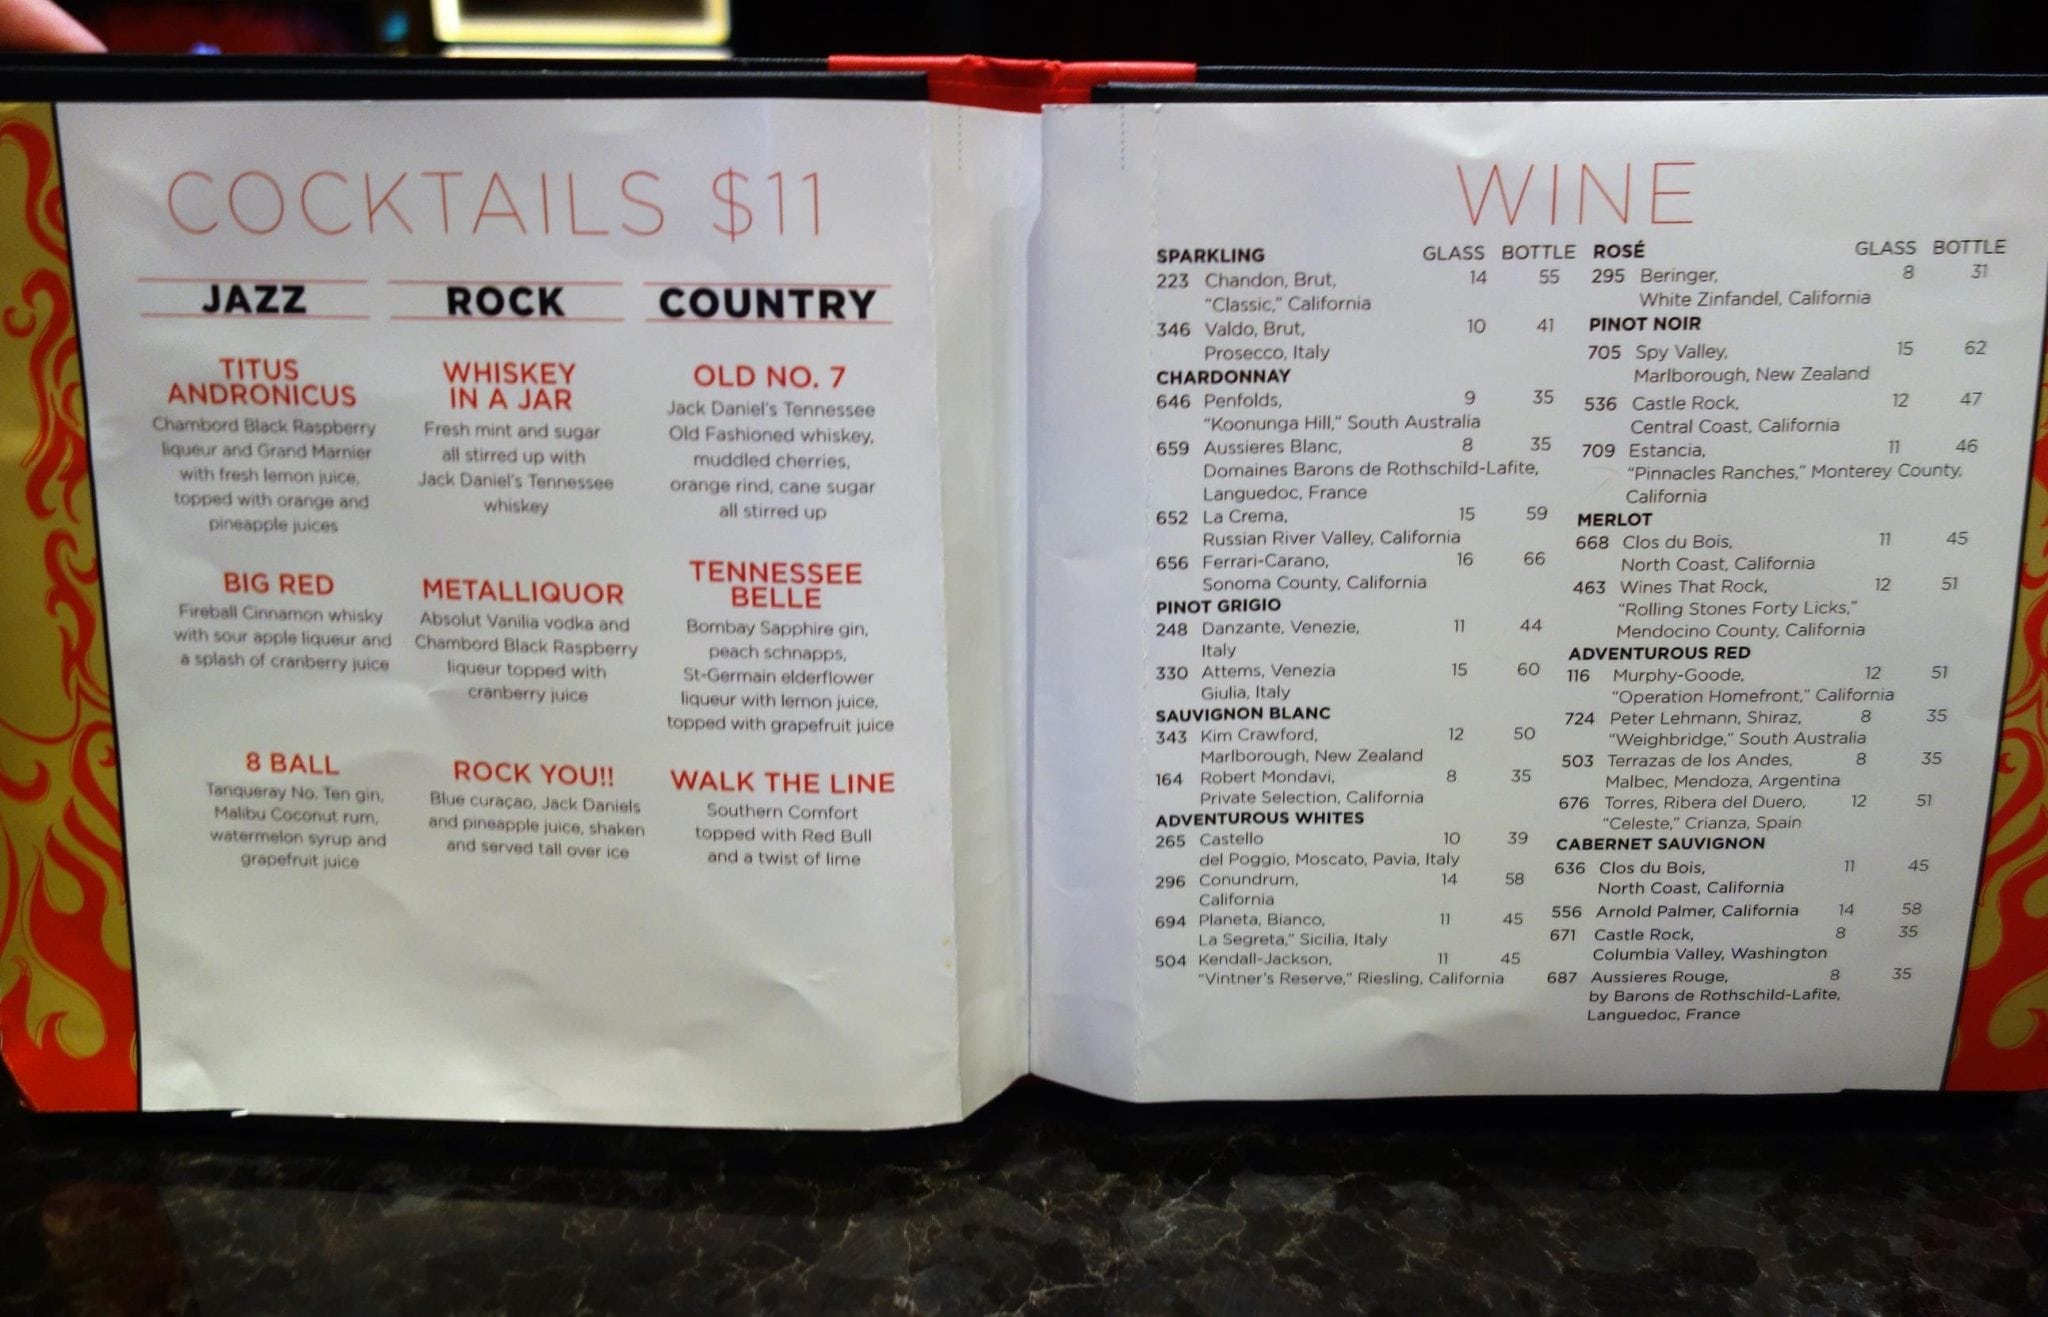 COCKTAILS $11
JAZZ
TITUS
ANDRONICUS
Chambord Black Raspberry
liqueur and Grand Marnier
with fresh lemon juice,
topped with orange and
pineapple juices
BIG RED
Fireball Cinnamon whisky
with sour apple liqueur and
a splash of cranberry juice
8 BALL
Tanqueray No. Ten gin,
Malibu Coconut rum,
watermelon syrup and
grapefruit juice
ROCK
WHISKEY
IN A JAR
Fresh mint and sugar
all stirred up with
Jack Daniel's Tennessee
whiskey
METALLIQUOR
Absolut Vanilia vodka and
Chambord Black Raspberry
liqueur topped with
cranberry juice
ROCK YOU!!
Blue curaçao, Jack Daniels
and pineapple juice, shaken
and served tall over ice
COUNTRY
OLD NO. 7
Jack Daniel's Tennessee
Old Fashioned whiskey,
muddled cherries,
orange rind, cane sugar
all stirred up
TENNESSEE
BELLE
Bombay Sapphire gin,
peach schnapps,
St-Germain elderflower
liqueur with lemon juice,
topped with grapefruit juice
WALK THE LINE
Southern Comfort
topped with Red Bull
and a twist of lime
WINE
SPARKLING GLASS BOTTLE
223 Chandon, Brut, 14 55
"Classic," California
346 Valdo, Brut, 10 41
Prosecco, Italy
CHARDONNAY
646 Penfolds, 9 35
"Koonunga Hill," South Australia
659 Aussieres Blanc, 8 35
Domaines Barons de Rothschild-Lafite,
Languedoc, France
652 La Crema, 15 59
Russian River Valley, California
656 Ferrari-Carano, 16 66
Sonoma County, California
PINOT GRIGIO
248 Danzante, Venezie, 11 44
Italy
330 Attems, Venezia 15 60
Giulia, Italy
SAUVIGNON BLANC
343 Kim Crawford, 12 50
Marlborough, New Zealand
164 Robert Mondavi, 8 35
Private Selection, California
ADVENTUROUS WHITES
265 Castello 10 39
del Poggio, Moscato, Pavia, Italy
296 Conundrum, 14 58
California
694 Planeta, Bianco, 11 45
La Segreta," Sicilia, Italy
504 Kendall-Jackson, 11 45
"Vintner's Reserve," Riesling, California
ROSÉ GLASS BOTTLE
295 Beringer, 8 31
White Zinfandel, California
PINOT NOIR
705 Spy Valley, 15 62
Marlborough, New Zealand
536 Castle Rock, 12 47
Central Coast, California
709 Estancia, 11 46
"Pinnacles Ranches," Monterey County,
California
MERLOT
668 Clos du Bois, 11 45
North Coast, California
463 Wines That Rock, 12 51
"Rolling Stones Forty Licks,"
Mendocino County, California
ADVENTUROUS RED
116 Murphy-Goode, 12 51
"Operation Homefront," California
724 Peter Lehmann, Shiraz, 8 35
"Weighbridge," South Australia
503 Terrazas de los Andes, 8 35
Malbec, Mendoza, Argentina
676 Torres, Ribera del Duero, 12 51
"Celeste," Crianza, Spain
CABERNET SAUVIGNON
636 Clos du Bois, 11 45
North Coast, California
556 Arnold Palmer, California 14 58
671 Castle Rock, 8 35
Columbia Valley, Washington
687 Aussieres Rouge, 8 35
by Barons de Rothschild-Lafite,
Languedoc, France